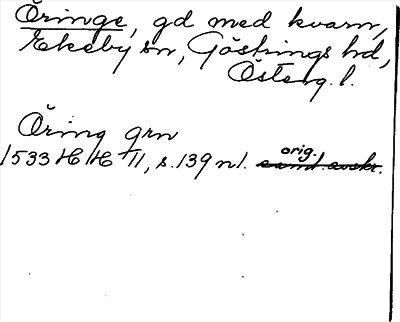 Öringe, gd med kvarn,
Ekeby sn, Göstrings hd,
Österg. l.
Öring grn
1533 HH II, s. 139 nl. orig.
samt. avskr.